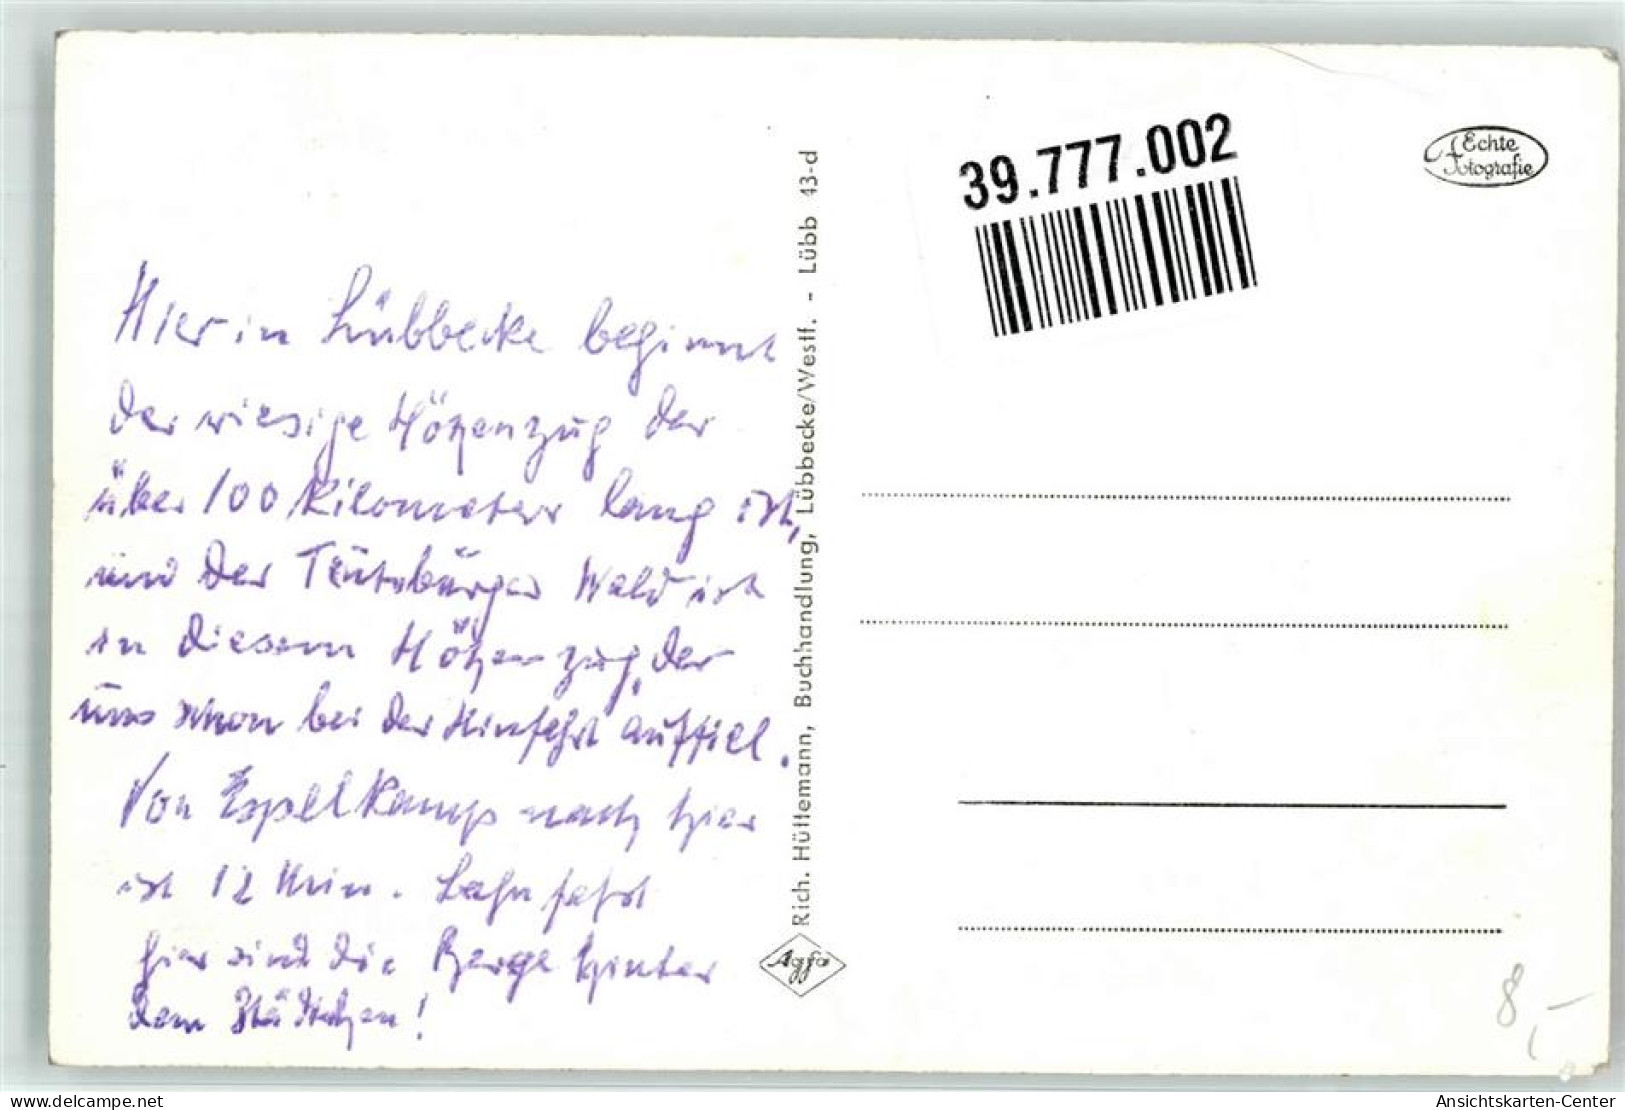 Hier in Lübbecke beginnt
der riesige Höhenzug der
über 100 Kilometer lang ist,
und der Teutoburger Wald ist
in diesem Höhenzug, der
uns schon bei der Hinfahrt auffiel.
Von Espelkamp nach hier
ist 12 Min. Bahnfahrt
hier sind die Berge hinter
dem Städtchen!
Rich. Hüttemann, Buchhandlung, Lübbecke/Westf. - Lübb 43-d
Agfa
39.777.002
Echte
Fotografie
8,-
www.delcampe.net
Ansichtskarten-Center